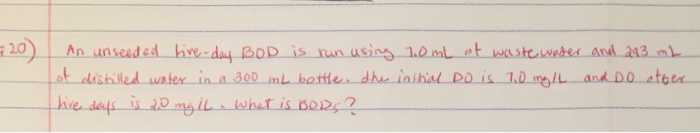 20) An unseeded five-day BOD is run using 7.0 mL of wastewater and 293 mL
of distilled water in a 300 mL bottle. The initial DO is 7.0 mg/L and DO after
five days is 2.0 mg/L. What is BOD5?